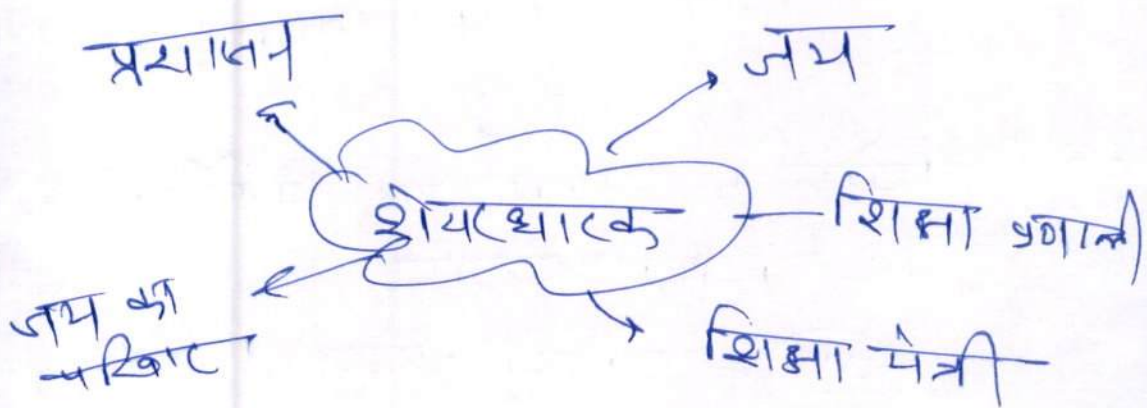 प्रशासन
जय
शेयरधारक
शिक्षा प्रणाली
जय का
परिवार
शिक्षा मंत्री